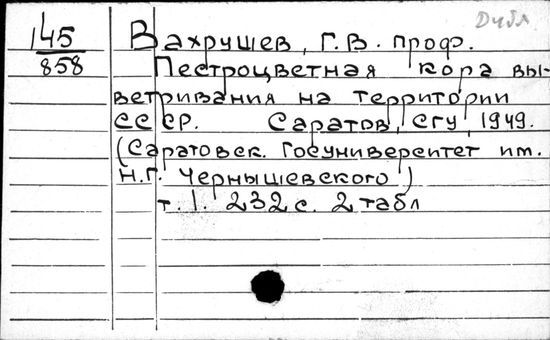 Дубл
145
858
Вахрушев, Г.В. проф.
Пестроцветная кора вы-
ветривания на территории
СССР. Саратов, СГУ, 1949.
(Саратовск. Госуниверситет им.
Н.Г. Чернышевского)
т. 1. 232 с. 2 табл